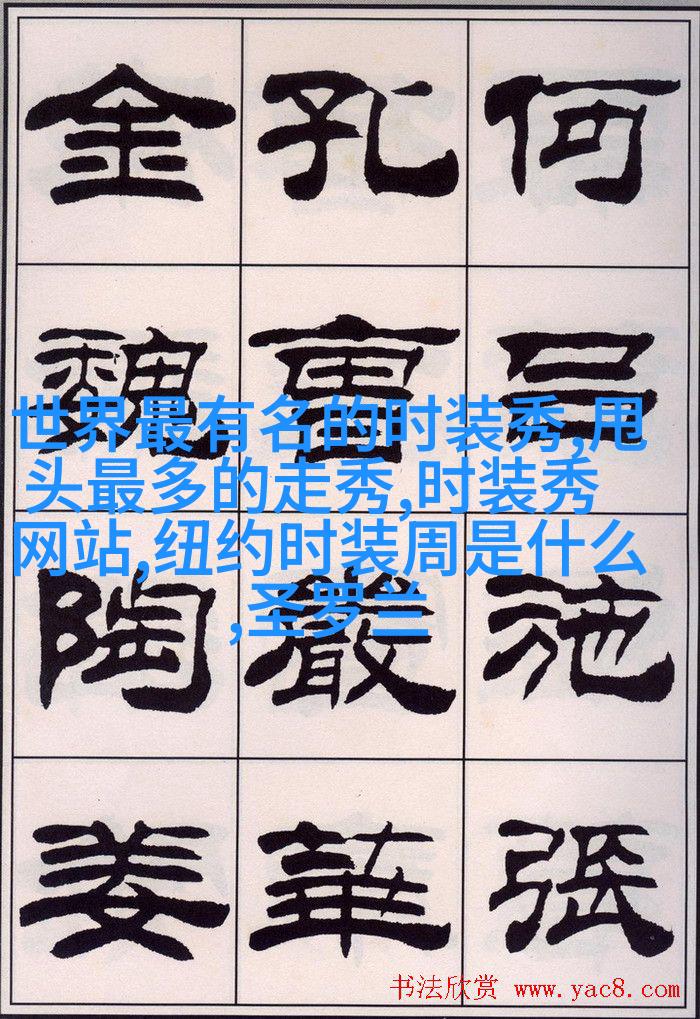 何呂施張
孔曹嚴華
金魏陶姜
世界最有名的时装秀,甩
头最多的走秀,时装秀
网站,纽约时装周是什么
,圣罗兰
书法欣赏 www.yac8.com